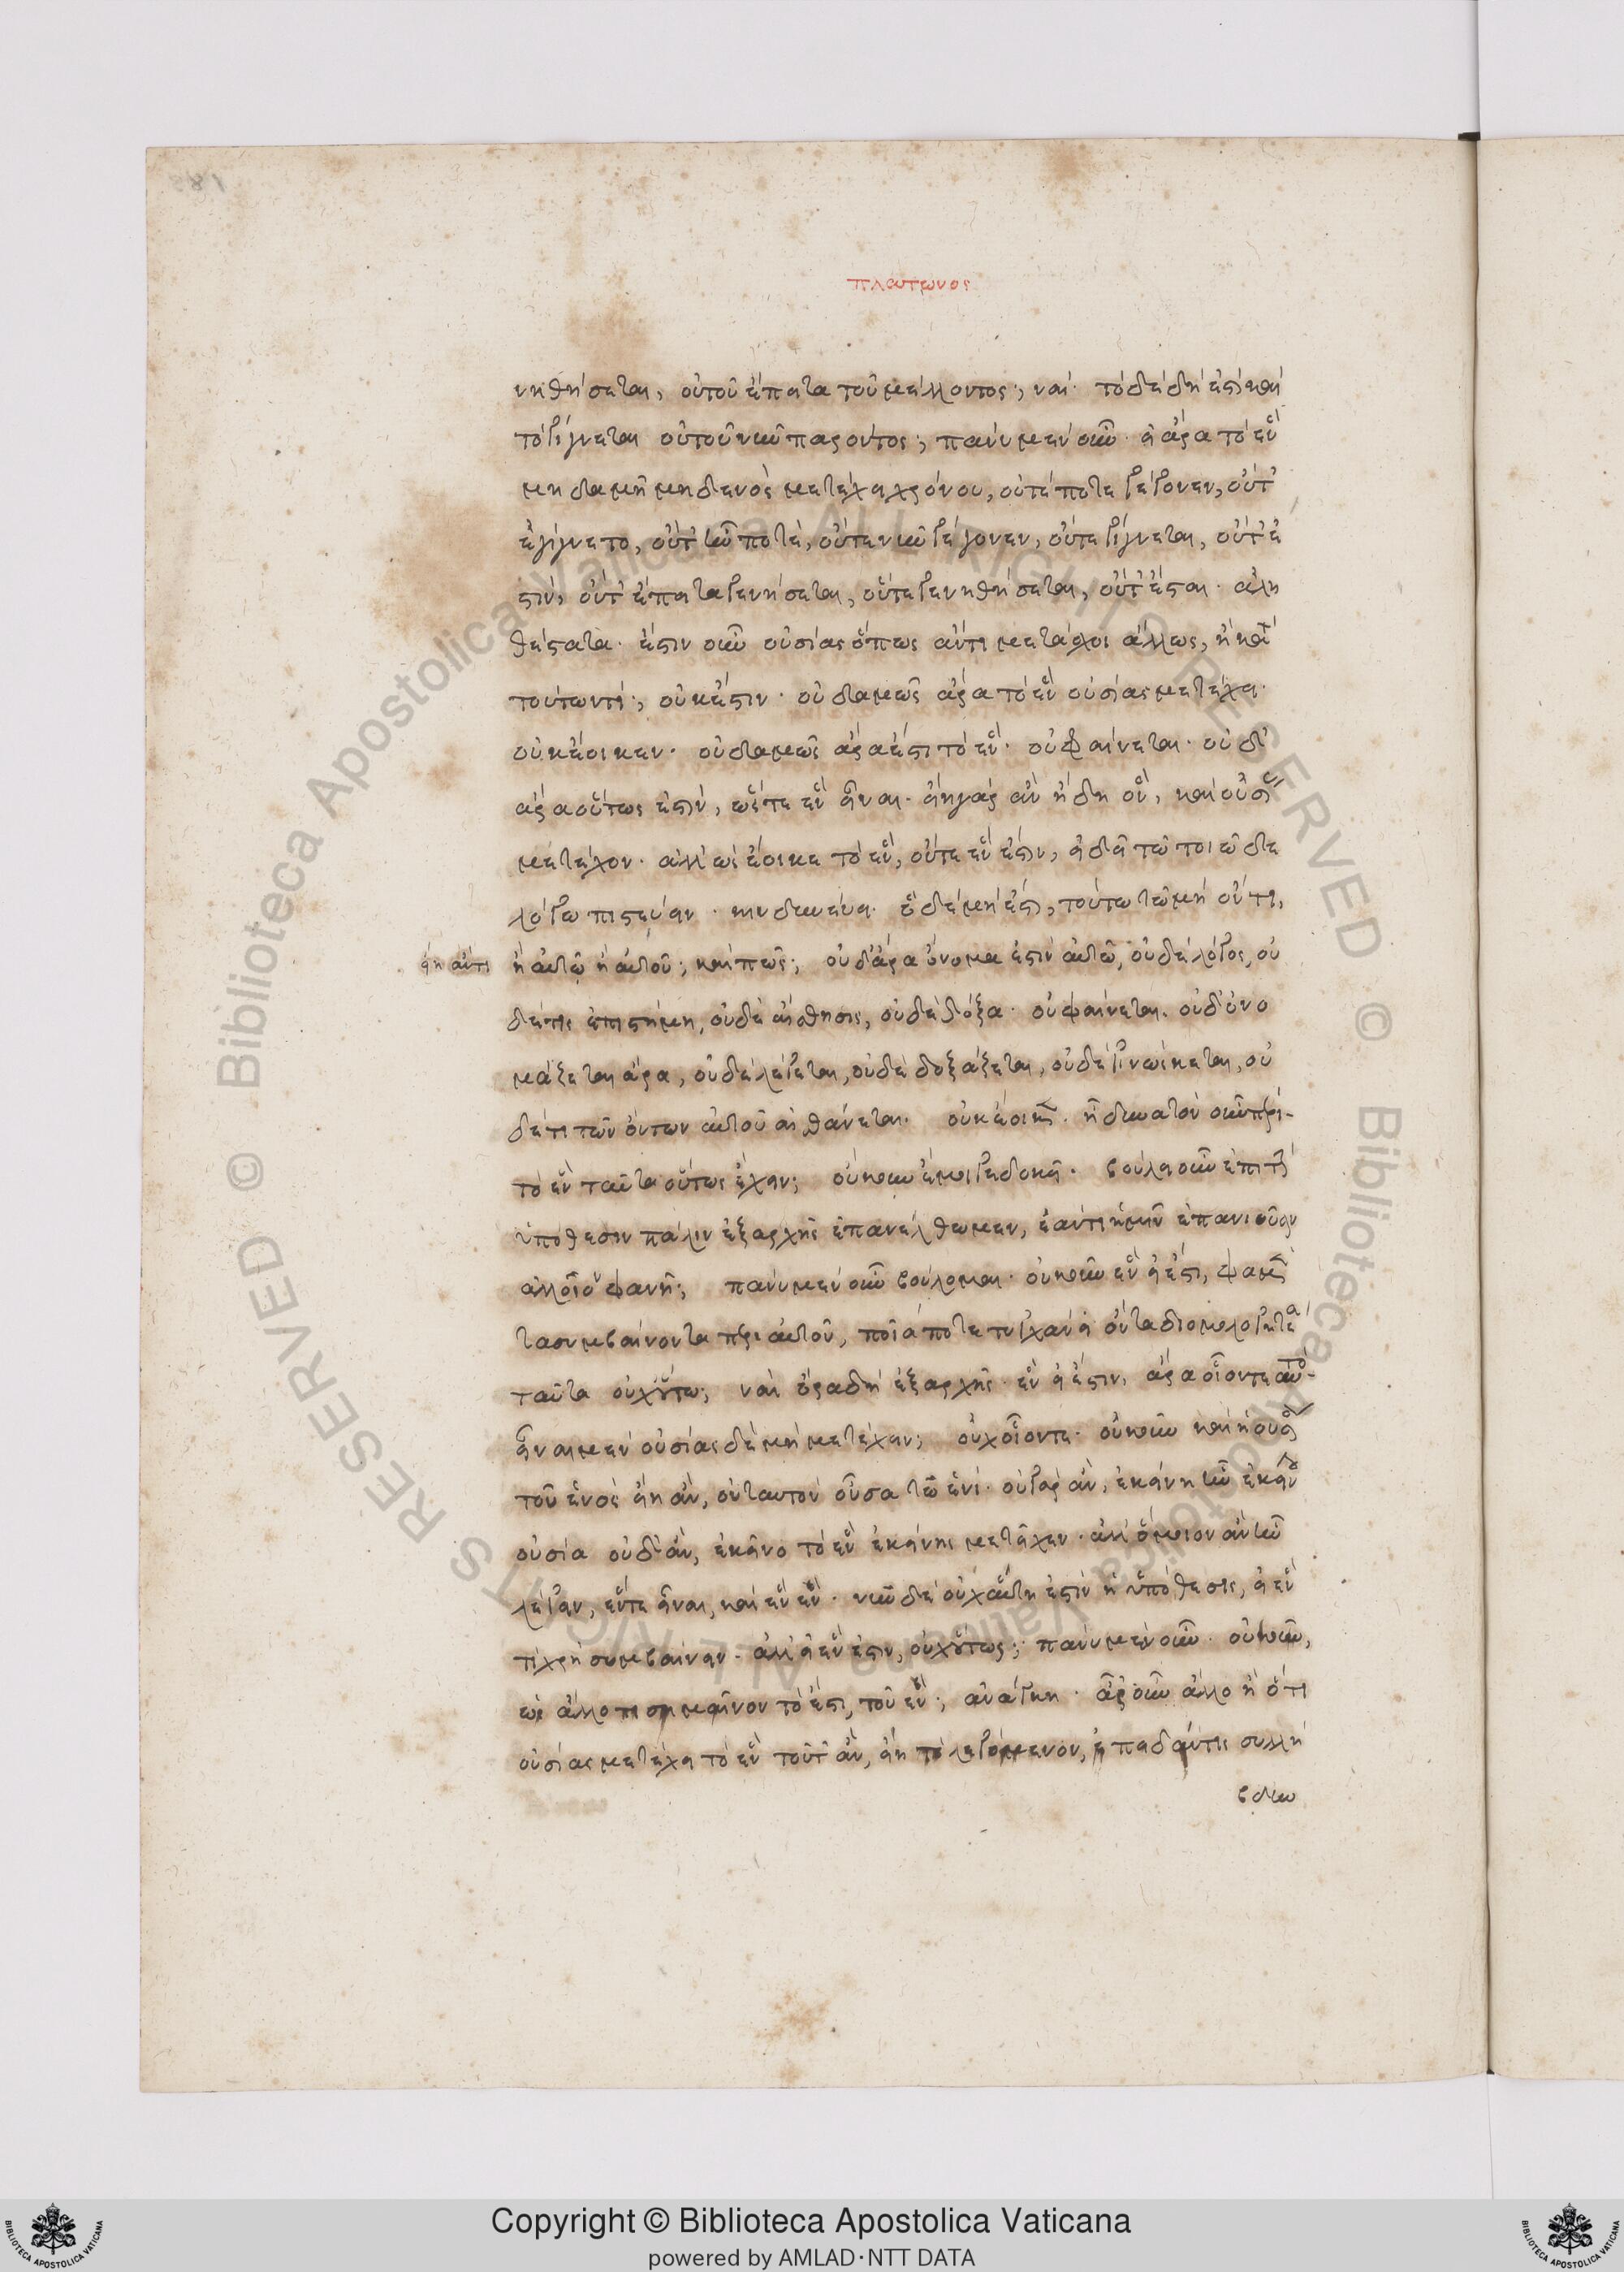 πλατωνος
νηθήσεται, οὐ τοῦ ἔπειτα τοῦ μέλλοντος; ναί. τὸ δὲ δὴ ἐστὶ καὶ
τὸ γίγνεται οὐ τοῦ νῦν παρόντος; πάνυ μὲν οὖν. εἰ ἄρα τὸ ἓν
μηδαμῆ μηδενὸς μετέχει χρόνου, οὔτέ ποτε γέγονεν, οὔτ'
ἐγίγνετο, οὔτ' ἦν ποτὲ, οὔτε νῦν γέγονεν, οὔτε γίγνεται, οὔτ' ἔ
στιν, οὔτ' ἔπειτα γενήσεται, οὔτε γενηθήσεται, οὔτ' ἔσται. ἀλη
θέστατα. ἔστιν οὖν οὐσίας ὅπως ἄν τι μετάσχοι ἄλλως, ἢ κατὰ
τούτων τί; οὐκ ἔστιν. οὐδαμῶς ἄρα τὸ ἓν οὐσίας μετέχει.
οὐκ ἔοικεν. οὐδαμῶς ἄρα ἔστι τὸ ἕν. οὐ φαίνεται. οὐδ'
ἄρα οὕτως ἐστὶν, ὥστε ἓν εἶναι. εἴη γὰρ ἂν ἤδη ὂν, καὶ οὐσίας
μετέχον. ἀλλ' ὡς ἔοικε τὸ ἓν, οὔτε ἕν ἐστιν, εἰ δεῖ τῶ τοιῶδε
λόγω πιστεύειν. κινδυνεύει. ὃ δὲ μὴ ἔστι, τούτω τῶ μὴ ὄντι,
εἴη ἄν τι ἢ αὐτῶ ἢ αὐτοῦ; καὶ πῶς; οὐδ' ἄρα ὄνομα ἐστὶν αὐτῶ, οὐδὲ λόγος, οὐ
δέ τις ἐπιστήμη, οὐδὲ αἴσθησις, οὐδὲ δόξα. οὐ φαίνεται. οὐδ' ὀνο
μάζεται ἄρα, οὐδὲ λέγεται, οὐδὲ δοξάζεται, οὐδὲ γινώσκεται, οὐ
δέ τι τῶν ὄντων αὐτοῦ αἰσθάνεται. οὐκ ἔοικεν. ἦ δυνατὸν οὖν περὶ
τὸ ἓν ταῦτα οὕτως ἔχειν; οὔκουν ἔμοιγε δοκεῖ. βούλει οὖν ἐπὶ τὴν
ὑπόθεσιν πάλιν ἐξαρχῆς ἐπανέλθωμεν, ἐάν τι ἡμῖν ἐπανιοῦσιν
ἀλλοῖον φανῆ; πάνυ μὲν οὖν βούλομαι. οὐκοῦν ἓν εἰ ἔστι, φαμὲν
τὰ συμβαίνοντα περὶ αὐτοῦ, ποῖά ποτε τυγχάνει ὄντα διομολογητέα
ταῦτα οὐχ οὕτω; ναί. ὅρα δὴ ἐξαρχῆς. ἓν εἰ ἔστιν, ἆρα οἷόντε αὐτὸ
εἶναι μὲν οὐσίας δὲ μὴ μετέχειν; οὐχ οἷόντε. οὐκοῦν καὶ ἡ οὐσία
τοῦ ἑνὸς εἴη ἂν, οὐ ταυτὸν οὖσα τῶ ἑνί. οὐ γὰρ ἂν, ἐκείνη ἦν ἐκείνου
οὐσία οὐδ' ἂν, ἐκεῖνο τὸ ἓν ἐκείνης μετεῖχεν. ἀλλ' ὅμοιον ἂν ἦν
λέγειν, ἕν τε εἶναι, καὶ ἓν ἕν. νῦν δὲ οὐχ αὕτη ἐστὶν ἡ ὑπόθεσις, εἰ ἓν
τί χρὴ συμβαίνειν. ἀλλ' εἰ ἓν ἔστιν, οὐχ οὕτως; πάνυ μὲν οὖν. οὐκοῦν,
ὡς ἄλλο τι σημαῖνον τὸ ἔστι, τοῦ ἕν; ἀνάγκη. ἆρ' οὖν ἄλλο ἢ ὅτι
οὐσίας μετέχει τὸ ἓν τοῦτ' ἂν, εἴη τὸ λεγόμενον, ἐπειδάν τις συλλή
βδην